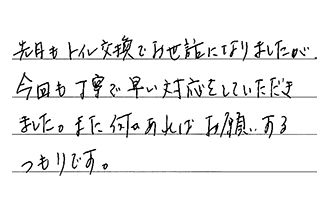 先日もトイレ交換でお世話になりましたが、
今回も丁寧で早い対応をしていただき
ました。また何かあればお願いする
つもりです。